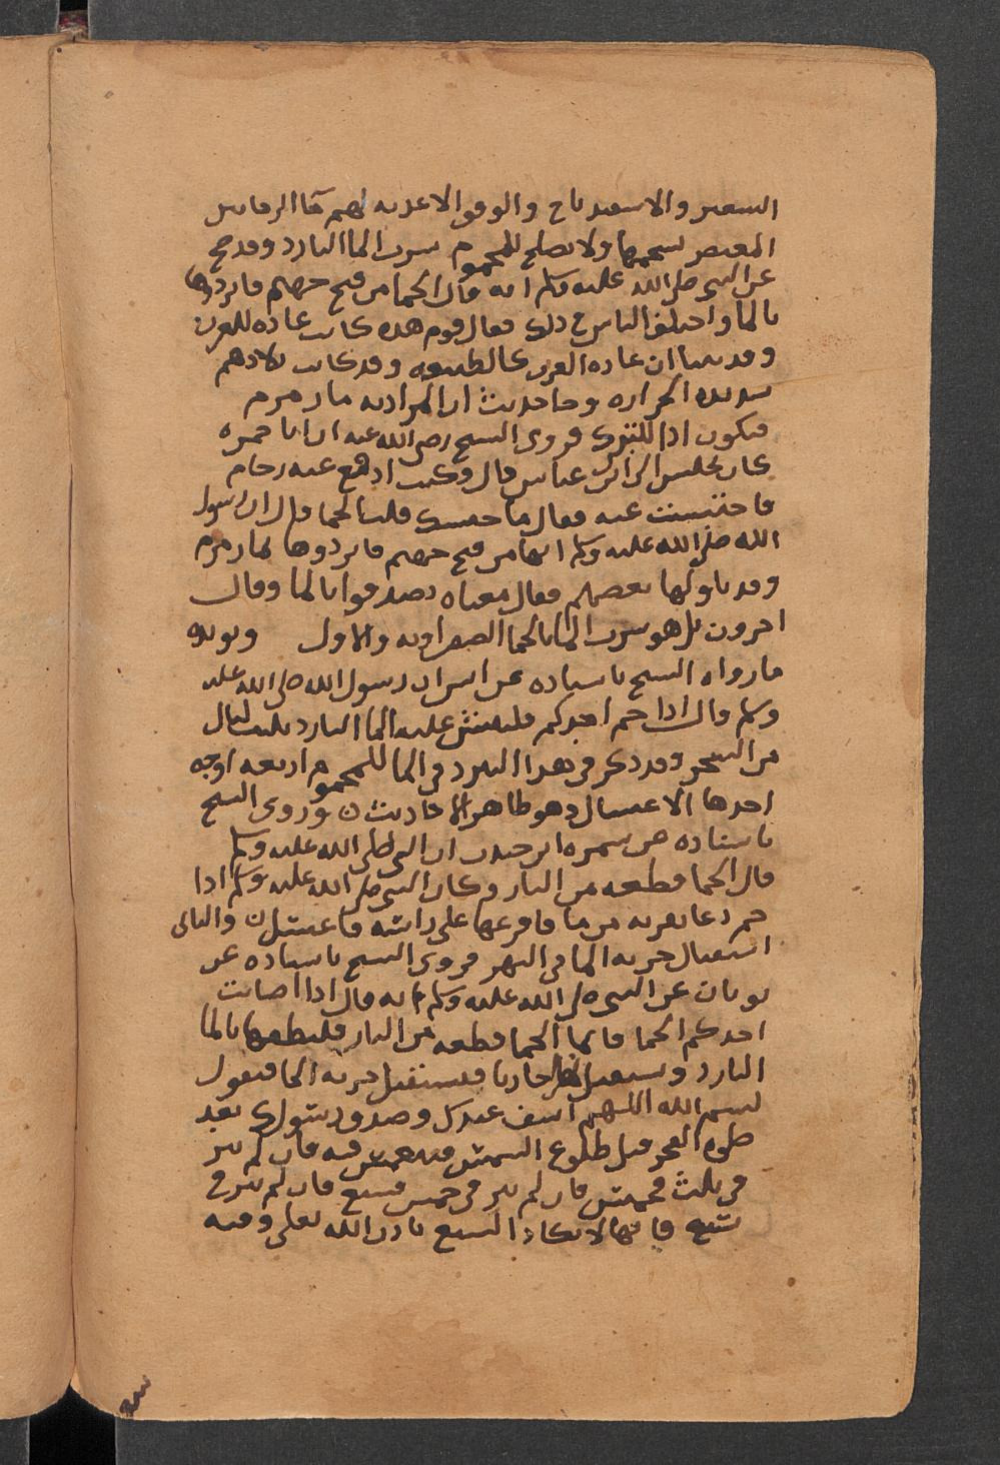 الشعير والاسفيدباج واوفق الاغذية لهم ماالرمانين
المعتصر بشحمهما ولا يصلح للمحموم شرب الما البارد وقد صح
عن النبي صلى الله عليه وسلم انه قال الحما من فيح جهنم فابردوها
بالما واختلف الناس في ذلك فقال قوم هذه كانت عادة للعرب
وقد بينا ان عادة العرب كالطبيعه وقد كانت بلادهم
شديده الحراره وجا حديث ان المراد به ما زمزم
فيكون اذا للتبرك فروى الشيخ رضي الله عنه ان ابا جمره
كان يجلس الى ابن عباس قال وكنت ادفع عنه زحام
فاحتبست عنه فقال ما حبسك قلت الحما قال ان رسول
الله صلى الله عليه وسلم انها من فيح جهنم فابردوها بما زمزم
وقد تاولها بعضهم فقال معناه تصدقوا بالما وقال
اخرون بل هو شرب الما بالحما الصفراويه والاول ويويده
ما رواه الشيخ باسناده عن انس ان رسول الله صلى الله عليه
وسلم قال اذا حم احدكم فليشن عليه الما البارد ثلث ليال
من السحر وقد ذكر في هذا التبرد في الما للمحموم اربعه اوجه
احدها الاغتسال وهو ظاهر الاحاديث ن وروى الشيخ
باسناده عن سمره ابن جندب ان النبي صلى الله عليه وسلم
قال الحما قطعه من النار وكان النبي صلى الله عليه وسلم اذا
حم دعا بقربه من ما فافرغها على راسه فاغتسل ن والثاني
استقبال جرية الما في النهر فروى الشيخ باسناده عن
ثوبان عن النبي صلى الله عليه وسلم انه قال اذا اصابت
احدكم الحما فانما الحما قطعه من النار فليطفها بالما
البارد ويستقبل نهرا جاريا فيستقبل جرية الما فيقول
بسم الله اللهم اشف عبدك وصدق رسولك بعد
صلوه الفجر قبل طلوع الشمس فيه فان لم تبر
في ثلث فخمس فان لم تبر في خمس فسبع فان لم تبر في
سبع فانها لا تكاد السبع باذن الله تعلى وفيه